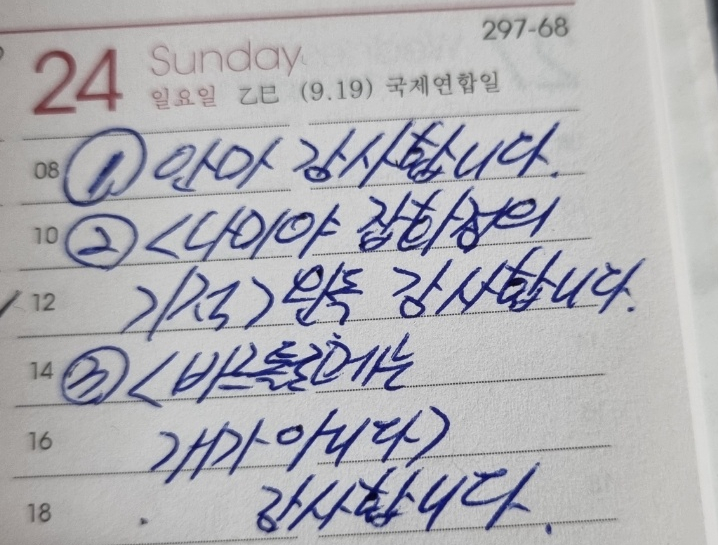 297-68
24 Sunday
일요일 乙巳 (9.19) 국제연합일
08 ① 안마 감사합니다.
10 ② <나미야 잡화점의
12 기적> 완독 감사합니다.
14 ③ <바르톨로메는
16 개가 아니다>
18 감사합니다.